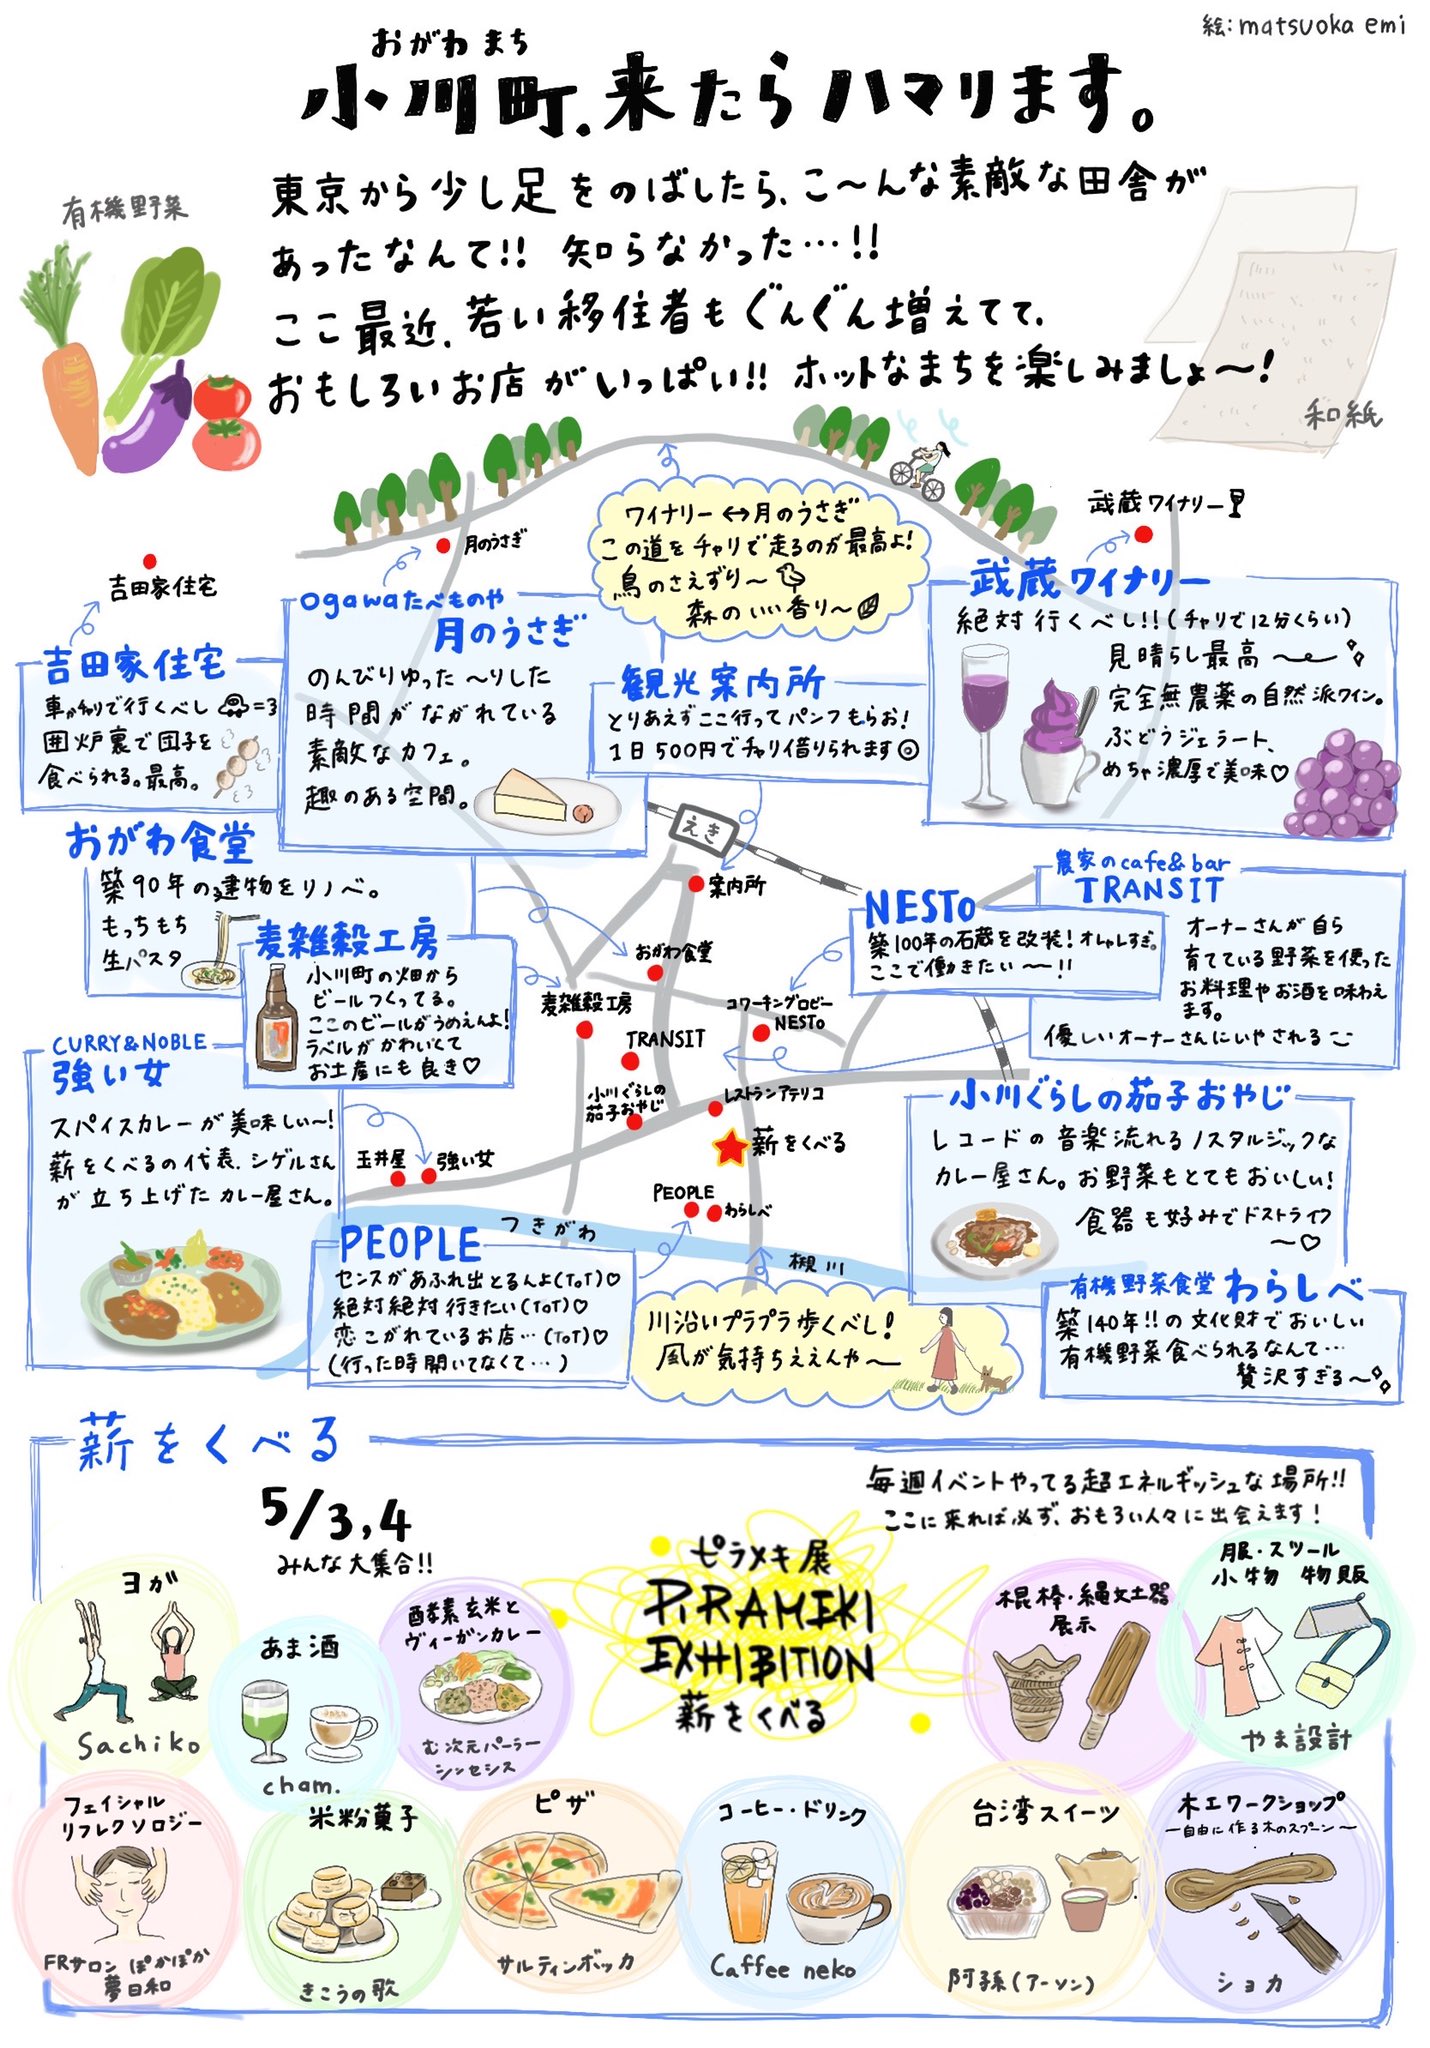 絵:matsuoka emi
おがわまち
小川町.来たらハマります。
有機野菜
東京から少し足をのばしたら、こ〜んな素敵な田舎が
あったなんて!! 知らなかった…!!
ここ最近、若い移住者もぐんぐん増えてて、
おもしろいお店がいっぱい!! ホットなまちを楽しみましょ〜!
和紙
ワイナリー↔月のうさぎ
この道をチャリで走るのが最高よ!
鳥のさえずり〜
森のいい香り〜
武蔵ワイナリー
月のうさぎ
吉田家住宅
吉田家住宅
車かチャリで行くべし =3
囲炉裏で団子を
食べられる。最高。
ogawaたべものや
月のうさぎ
のんびりゆった〜りした
時間がながれている
素敵なカフェ。
趣のある空間。
観光案内所
とりあえずここ行ってパンフもらお!
1日500円でチャリ借りられます◎
武蔵ワイナリー
絶対行くべし!!(チャリで12分くらい)
見晴らし最高〜
完全無農薬の自然派ワイン。
ぶどうジェラート、
めちゃ濃厚で美味♡
えき
案内所
おがわ食堂
築90年の建物をリノベ。
もっちもち
生パスタ
麦雑穀工房
小川町の畑から
ビールつくってる。
ここのビールがうめえんよ!
ラベルがかわいくて
お土産にも良き♡
NESTo
築100年の石蔵を改装!オシャレすぎ。
ここで働きたい〜!!
農家のcafe&bar
TRANSIT
オーナーさんが自ら
育てている野菜を使った
お料理やお酒を味わえ
ます。
優しいオーナーさんにいやされる
おがわ食堂
麦雑穀工房
コワーキングロビー
NESTo
TRANSIT
小川ぐらしの
茄子おやじ
レストランアテリコ
薪をくべる
玉井屋
強い女
PEOPLE
わらしべ
つきがわ
槻川
CURRY&NOBLE
強い女
スパイスカレーが美味しい〜!
薪をくべるの代表、シゲルさん
が立ち上げたカレー屋さん。
小川ぐらしの茄子おやじ
レコードの音楽流れるノスタルジックな
カレー屋さん。お野菜もとてもおいしい!
食器も好みでドストライク
〜♡
PEOPLE
センスがあふれ出とるんよ(ToT)♡
絶対絶対行きたい(ToT)♡
恋こがれているお店…(ToT)♡
(行った時開いてなくて…)
川沿いプラプラ歩くべし!
風が気持ちええんや〜
有機野菜食堂 わらしべ
築140年!!の文化財でおいしい
有機野菜食べられるなんて…
贅沢すぎる〜
薪をくべる
毎週イベントやってる超エネルギッシュな場所!!
ここに来れば必ず、おもろい人々に出会えます!
5/3,4
みんな大集合!!
ピラメキ展
PIRAMEKI
EXHIBITION
薪をくべる
ヨガ
Sachiko
あま酒
cham.
酵素玄米と
ヴィーガンカレー
む次元パーラー
シンセシス
棍棒・縄文土器
展示
服・スツール
小物 物販
やま設計
フェイシャル
リフレクソロジー
FRサロン ぽかぽか
夢日和
米粉菓子
きこうの歌
ピザ
サルティンボッカ
コーヒー・ドリンク
Caffee neko
台湾スイーツ
阿孫(アーソン)
木工ワークショップ
ー自由に作る木のスプーン〜
ショカ